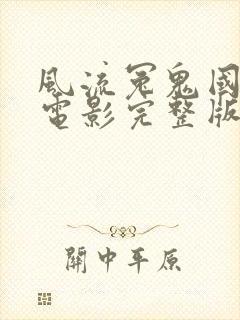 風流冤鬼國
電影完整版
關中平原